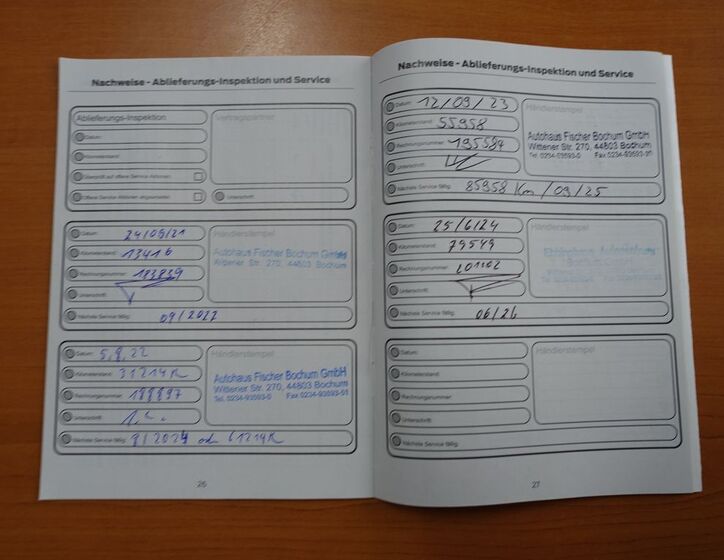 Nachweise - Ablieferungs-Inspektion und Service
Ablieferungs-Inspektion
Vertragspartner
Datum:
Kilometerstand:
Überprüft auf offene Service Aktionen
Offene Service Aktionen angewendet
Unterschrift:
Datum: 24/09/21
Händlerstempel
Kilometerstand: 13416
Autohaus Fischer Bochum GmbH
Wittener Str. 270, 44803 Bochum
Rechnungsnummer: 183839
Unterschrift:
Nächste Service fällig: 09/2022
Datum: 5.9.22
Händlerstempel
Kilometerstand: 31214K
Autohaus Fischer Bochum GmbH
Wittener Str. 270, 44803 Bochum
Tel. 0234-93593-0 Fax 0234-93593-91
Rechnungsnummer: 188897
Unterschrift:
Nächste Service fällig: 9/2024 od 61214K
26
Nachweise - Ablieferungs-Inspektion und Service
Datum: 12/09/23
Händlerstempel
Kilometerstand: 55958
Autohaus Fischer Bochum GmbH
Wittener Str. 270, 44803 Bochum
Rechnungsnummer: 195584
Tel. 0234-93593-0
Unterschrift:
Nächste Service fällig: 85958 Km / 09/25
Datum: 25/6/24
Händlerstempel
Kilometerstand: 79549
Rechnungsnummer: 201102
Unterschrift:
Nächste Service fällig: 06/26
Datum:
Händlerstempel
Kilometerstand:
Rechnungsnummer:
Unterschrift:
Nächste Service fällig:
27